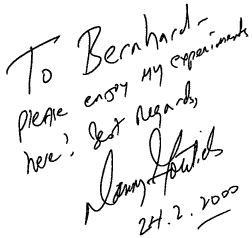 To Bernhard -
please enjoy my experiments
here! Best Regards,
24.2.2000